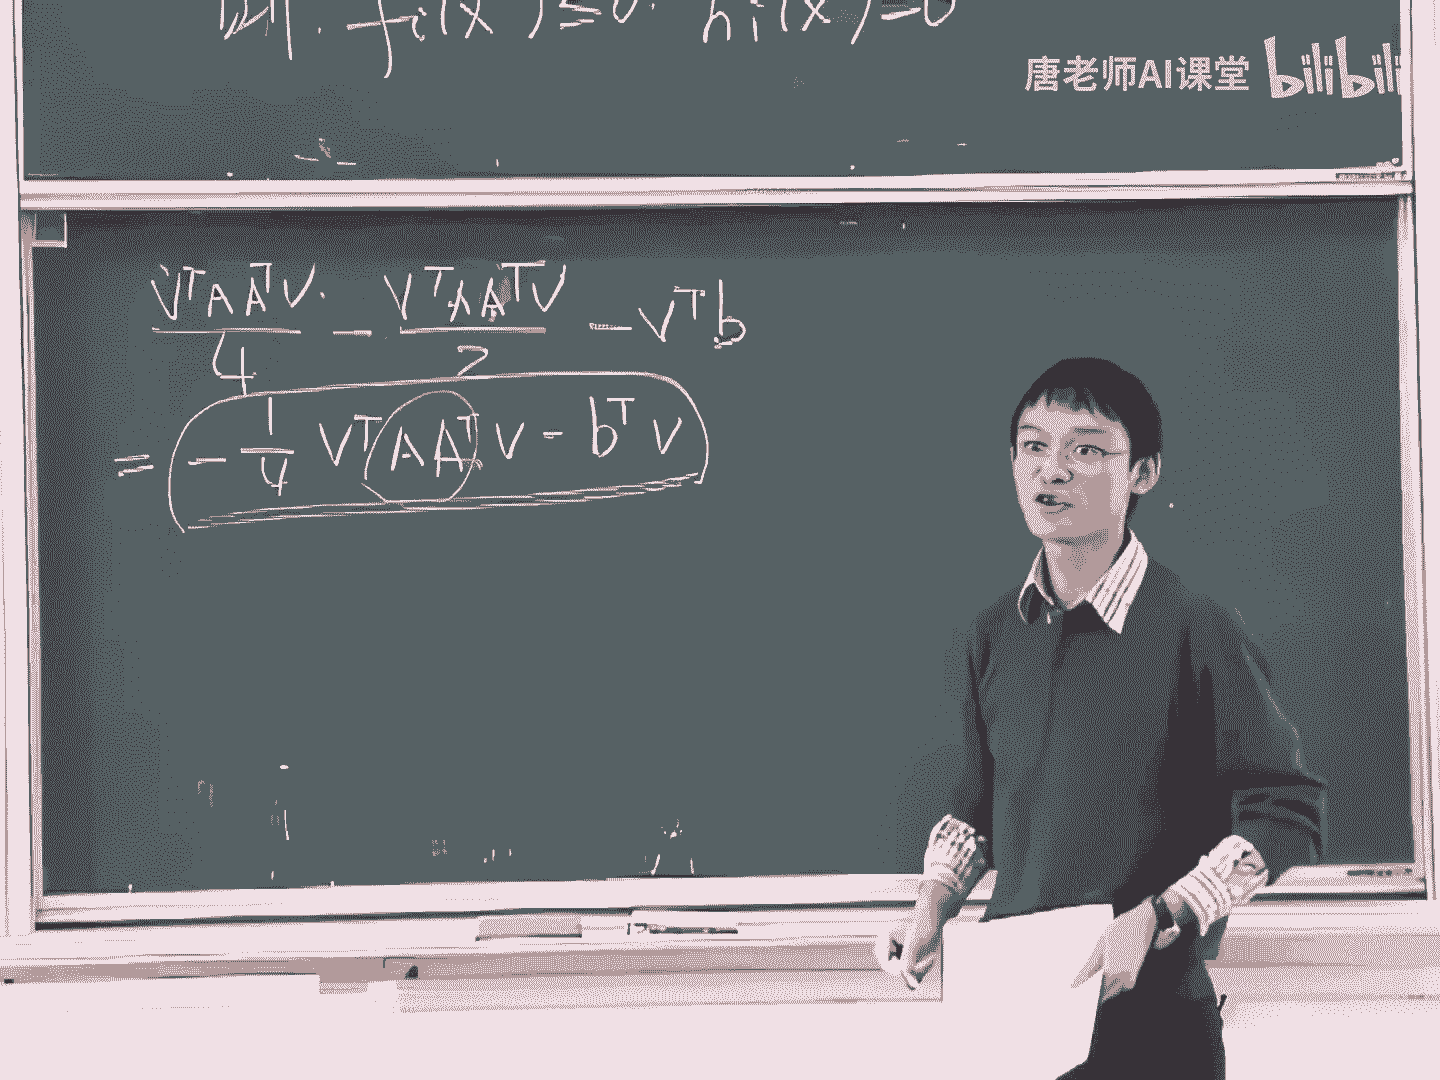 fi(x)≤0. hi(x)=0
唐老师AI课堂 bilibili
VᵀAAᵀV/4 - VᵀAAᵀV/2 - Vᵀb
= -1/4 VᵀAAᵀV - bᵀV